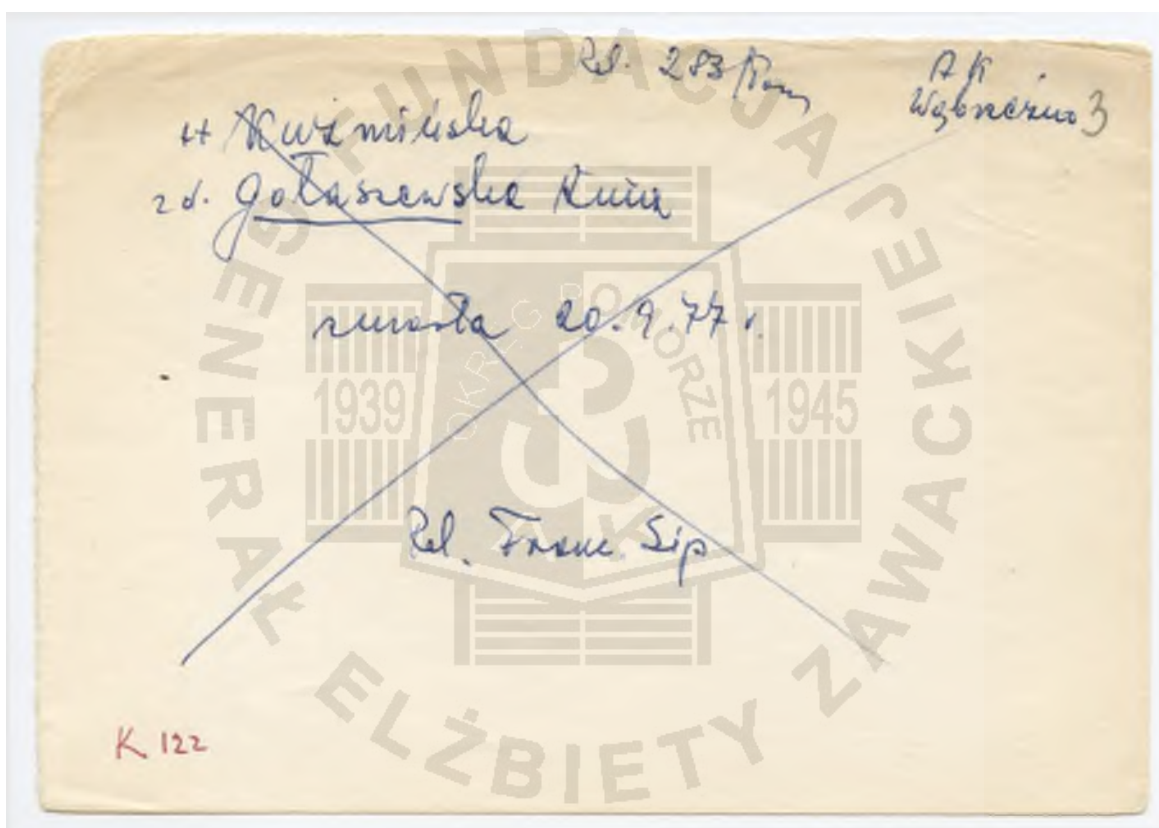 Rel. 283/Pom
AK
Wąbrzeźno 3
Kuźmińska
zd. Gołaszewska Anna
zmarła 20.9.77 r.
Rel. Franc. Sip
K 122
FUNDACJA GENERAŁ ELŻBIETY ZAWACKIEJ
OKRĘG POMORZE
1939
1945
AK